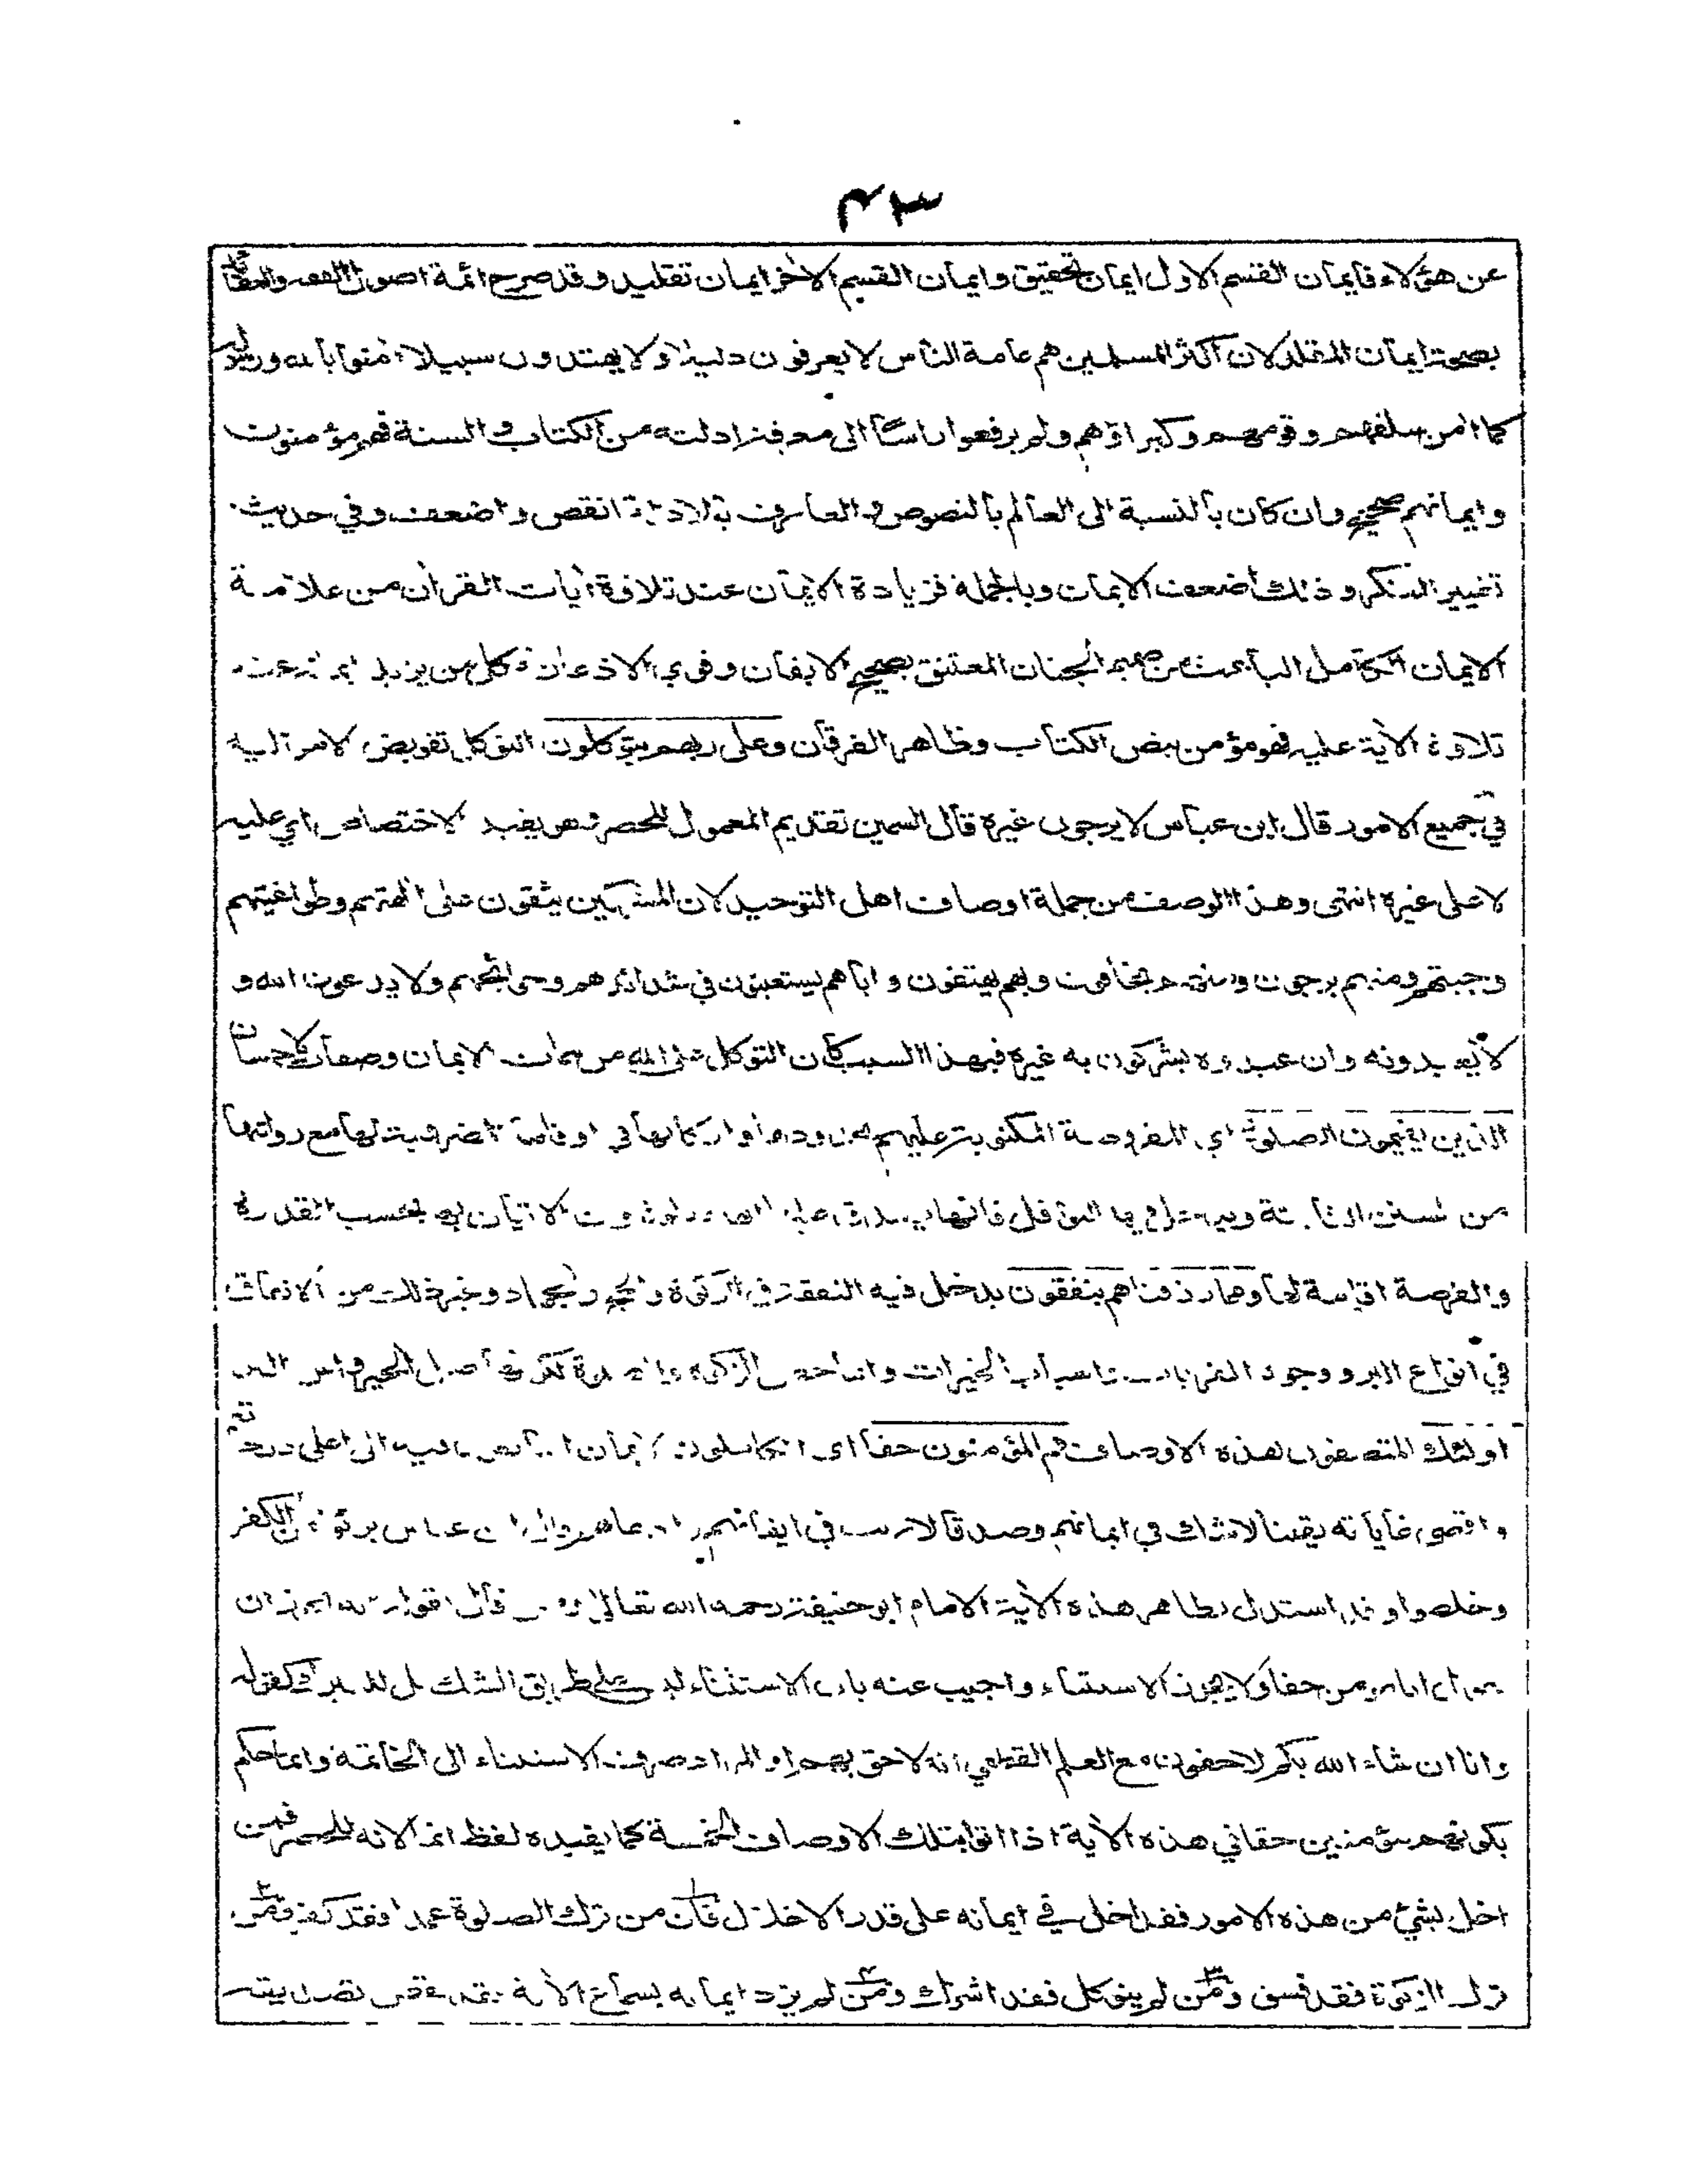 ٤٣
عن هؤلاء فايمان القسم الاول ايمان تحقيق وايمان القسم الاخر ايمان تقليد وقد صرح ائمة اصول الفقه والعقائد
بصحة ايمان المقلد لان اكثر المسلمين هم عامة الناس لا يعرفون دليلا ولا يهتدون سبيلا امنوا بالله ورسوله
كما امن سلفهم وقومهم وكبراؤهم ولم يرفعوا راسا الى معرفة ادلته من الكتاب والسنة فهم مؤمنون
وايمانهم صحيح وان كان بالنسبة الى العالم بالنصوص والعارف بالادلة انقص واضعف وفي حديث
تغيير المنكر وذلك اضعف الايمان وبالجملة فزيادة الايمان عند تلاوة ايات القران من علامة
الايمان الكامل الباعث من صميم الجنان المعتنق بصحيح الايقان وقوي الاذعان فكل من يزيد ايمانه عند
تلاوة الاية عليه فهو مؤمن بنص الكتاب وظاهر الفرقان وعلى ربهم يتوكلون التوكل تفويض الامر اليه
في جميع الامور قال ابن عباس لا يرجون غيره قال السمين تقديم المعمول للحصر فهو يفيد الاختصاص اي عليه
لا على غيره انتهى وهذا الوصف من جملة اوصاف اهل التوحيد لان المشركين يثقون على الهتهم وطواغيتهم
وجبتهم ومنهم يرجون ومنهم يخافون وبهم يهتفون واياهم يستعينون في شدائدهم وحوائجهم ولا يدعون الله و
لا يعبدونه وان عبدوه يشركون به غيره فبهذا السبب كان التوكل على الله من سمات الايمان وصفات الاحسان
الذين يقيمون الصلوة اي المفروضة المكتوبة عليهم بحدودها واركانها في اوقاتها المضروبة لها مع رواتبها
من السنن الثابتة ويدخل فيها النوافل فانها يصدق عليها الاتيان بها بحسب القدرة
والفرصة اقامة لها ومما رزقناهم ينفقون يدخل فيه النفقة في الزكوة والحج والجهاد وغير ذلك من الانفاق
في انواع البر ووجوه القربات واسباب الخيرات وانما خص الزكوة والصلوة لكونهما اصل الخير واس البر
اولئك المتصفون بهذه الاوصاف هم المؤمنون حقا اي الكاملون الايمان الى اعلى درجاته
واقصى غاياته يقينا لا شك في ايمانهم وصدقا لا ريب في ايقانهم ابن عباس برئوا من الكفر
وخلصوا وقد استدل بظاهر هذه الاية الامام ابو حنيفة رحمه الله تعالى ان
يقول انا مؤمن حقا ولا يجوز الاستثناء واجيب عنه بان الاستثناء ليس على طريق الشك بل للتبرك كقوله
وانا ان شاء الله بكم لاحقون مع العلم القطعي انه لاحق بهم او المراد صرف الاستثناء الى الخاتمة وانما حكم
بكونهم مؤمنين حقا في هذه الاية اذا اتوا بتلك الاوصاف الخمسة كما يفيده لفظ انما لانه للحصر فمن
اخل بشيئ من هذه الامور فقد اخل في ايمانه على قدر الاخلال فان من ترك الصلوة عمدا فقد كفر ومن
ترك الزكوة فقد فسق ومن لم يتوكل فقد اشرك ومن لم يزد ايمانه بسماع الاية فقد نقص تصديقه